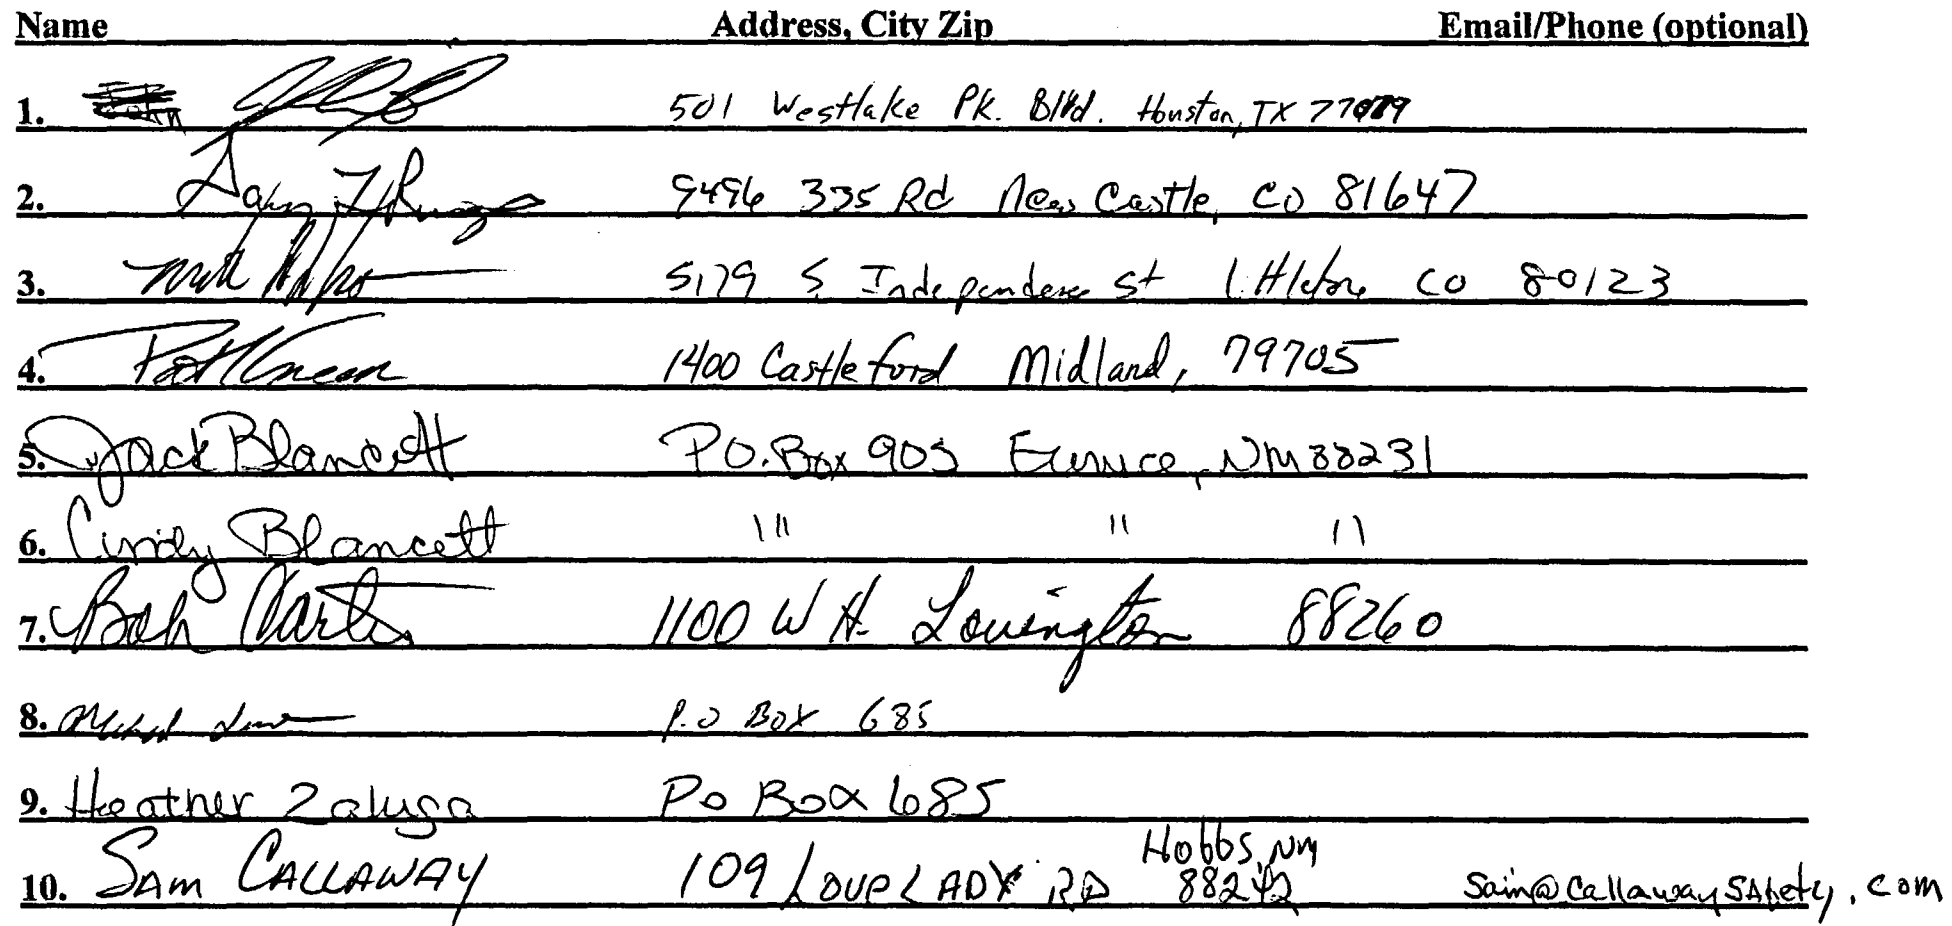 Name Address, City Zip Email/Phone (optional)
1. 501 Westlake Pk. Blvd. Houston, TX 77079
2. 9496 335 Rd New Castle, CO 81647
3. 5179 S Independence St Littleton CO 80123
4. 1400 Castleford Midland, 79705
5. Jack Blancett P.O. Box 905 Eunice, NM 88231
6. Cindy Blancett " " "
7. Bob Carter 1100 W H. Lovington 88260
8. P.O BOX 685
9. Heather Zaluga PO Box 685
10. SAM CALLAWAY 109 LOVELADY RD Hobbs, NM 88242 Sam@CallawaySAfety.com